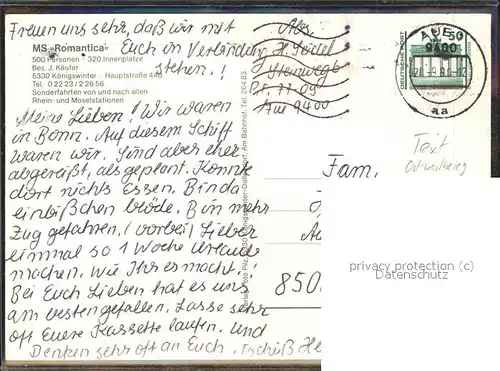 Freuen uns sehr, daß wir mit
Euch in Verbindung
stehen!
MS „Romantica"
500 Personen · 320 Innenplätze
Bes. J. Käufer
5330 Königswinter · Hauptstraße
Tel. 0 22 23 / 2 26 56
Sonderfahrten von und nach allen
Rhein- und Moselstationen
Abs.
H. Seidel
Steinweg
Aue 9400
AUE
9400
aa
50
DEUTSCHE POST
Meine Lieben! Wir waren
in Bonn. Auf diesem Schiff
waren wir. Sind aber eher
abgereißt, als geplant. Konnte
dort nichts Essen. Bin da
ein bißchen blöde. Bin mehr
Zug gefahren! Lieber
einmal so 1 Woche Urlaub
machen, wie Ihr es macht!
Bei Euch Lieben hat es uns
am besten gefallen. Lasse sehr
oft Euere Kassette laufen, und
Denken sehr oft an Euch. Tschüß
Königswinter-Am Bahnhof, Tel. 284 83
Text
Fam.
850
privacy protection (c)
Datenschutz